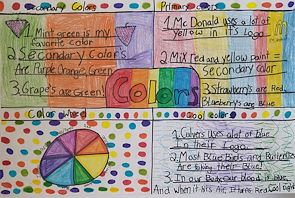 Secondary Colors
1. Mint green is my
favorite color
2 Secondary Colors
Are Purple, Orange, Green
3. Grapes are Green!
Primary Colors
1. Mc Donald uses a lot of
Yellow in it's Logo
2. Mix red and yellow paint =
Secondary color
3. Strawberry's are Red,
Blueberry's are Blue
Colors
Color Wheel
Cool colors
1. Culvers uses alot of blue
In their Logo.
2. Most Blue Birds and
are Blue!
3. In our Body our blood is blue
And when it hits Air, It turns Red. Cool right